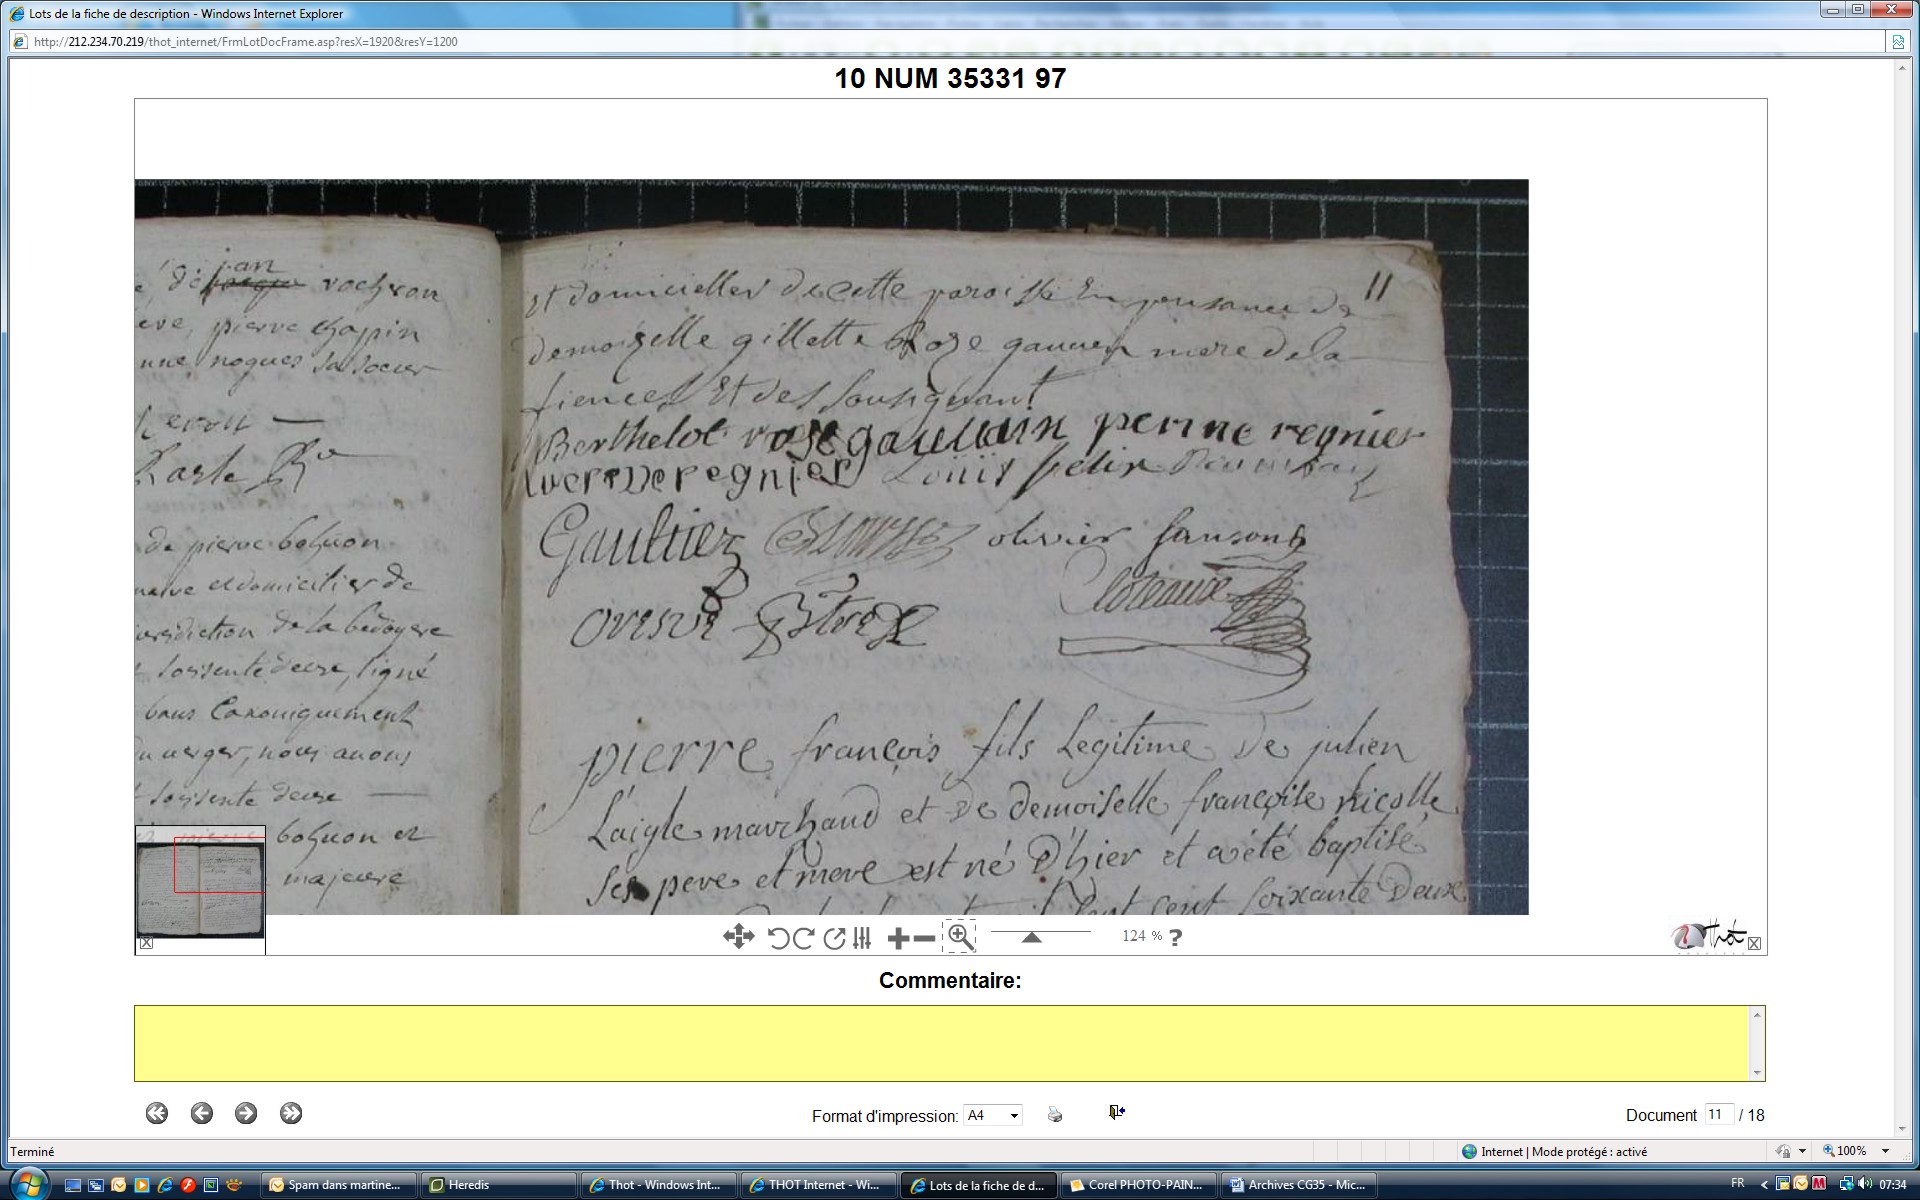 Lots de la fiche de description - Windows Internet Explorer
http://212.234.70.219/thot_internet/FrmLotDocFrame.asp?resX=1920&resY=1200
10 NUM 35331 97
jan
rochron
eve, pierre chapin
nogues sa soeur
de pierre bohuon
et domicilier de
jurisdiction de la bedoyere
soissente deux, signé
bans Canoniquement
du verger, nous avons
soissente deux
bohuon et
majeure
11
et domicilier de cette paroisse En presance de
demoizelle gillette Roze gauven mere de la
fiencee Et des sousignant
Berthelot rose gaullain perine regnier
regnier Louis felix
Gaultier olivier sanson
Cloteaux
pierre françois fils Legitime de julien
L'aigle marchand et De demoiselle françoise nicolle
Ses pere et mere est né D'hier et a été baptisé
sept cent soixante Deux
124 %
?
Thot
Commentaire:
Format d'impression: A4
Document 11 / 18
Terminé
Internet | Mode protégé : activé
100%
Spam dans martine...
Heredis
Thot - Windows Int...
THOT Internet - Wi...
Lots de la fiche de d...
Corel PHOTO-PAIN...
Archives CG35 - Mic...
FR
07:34